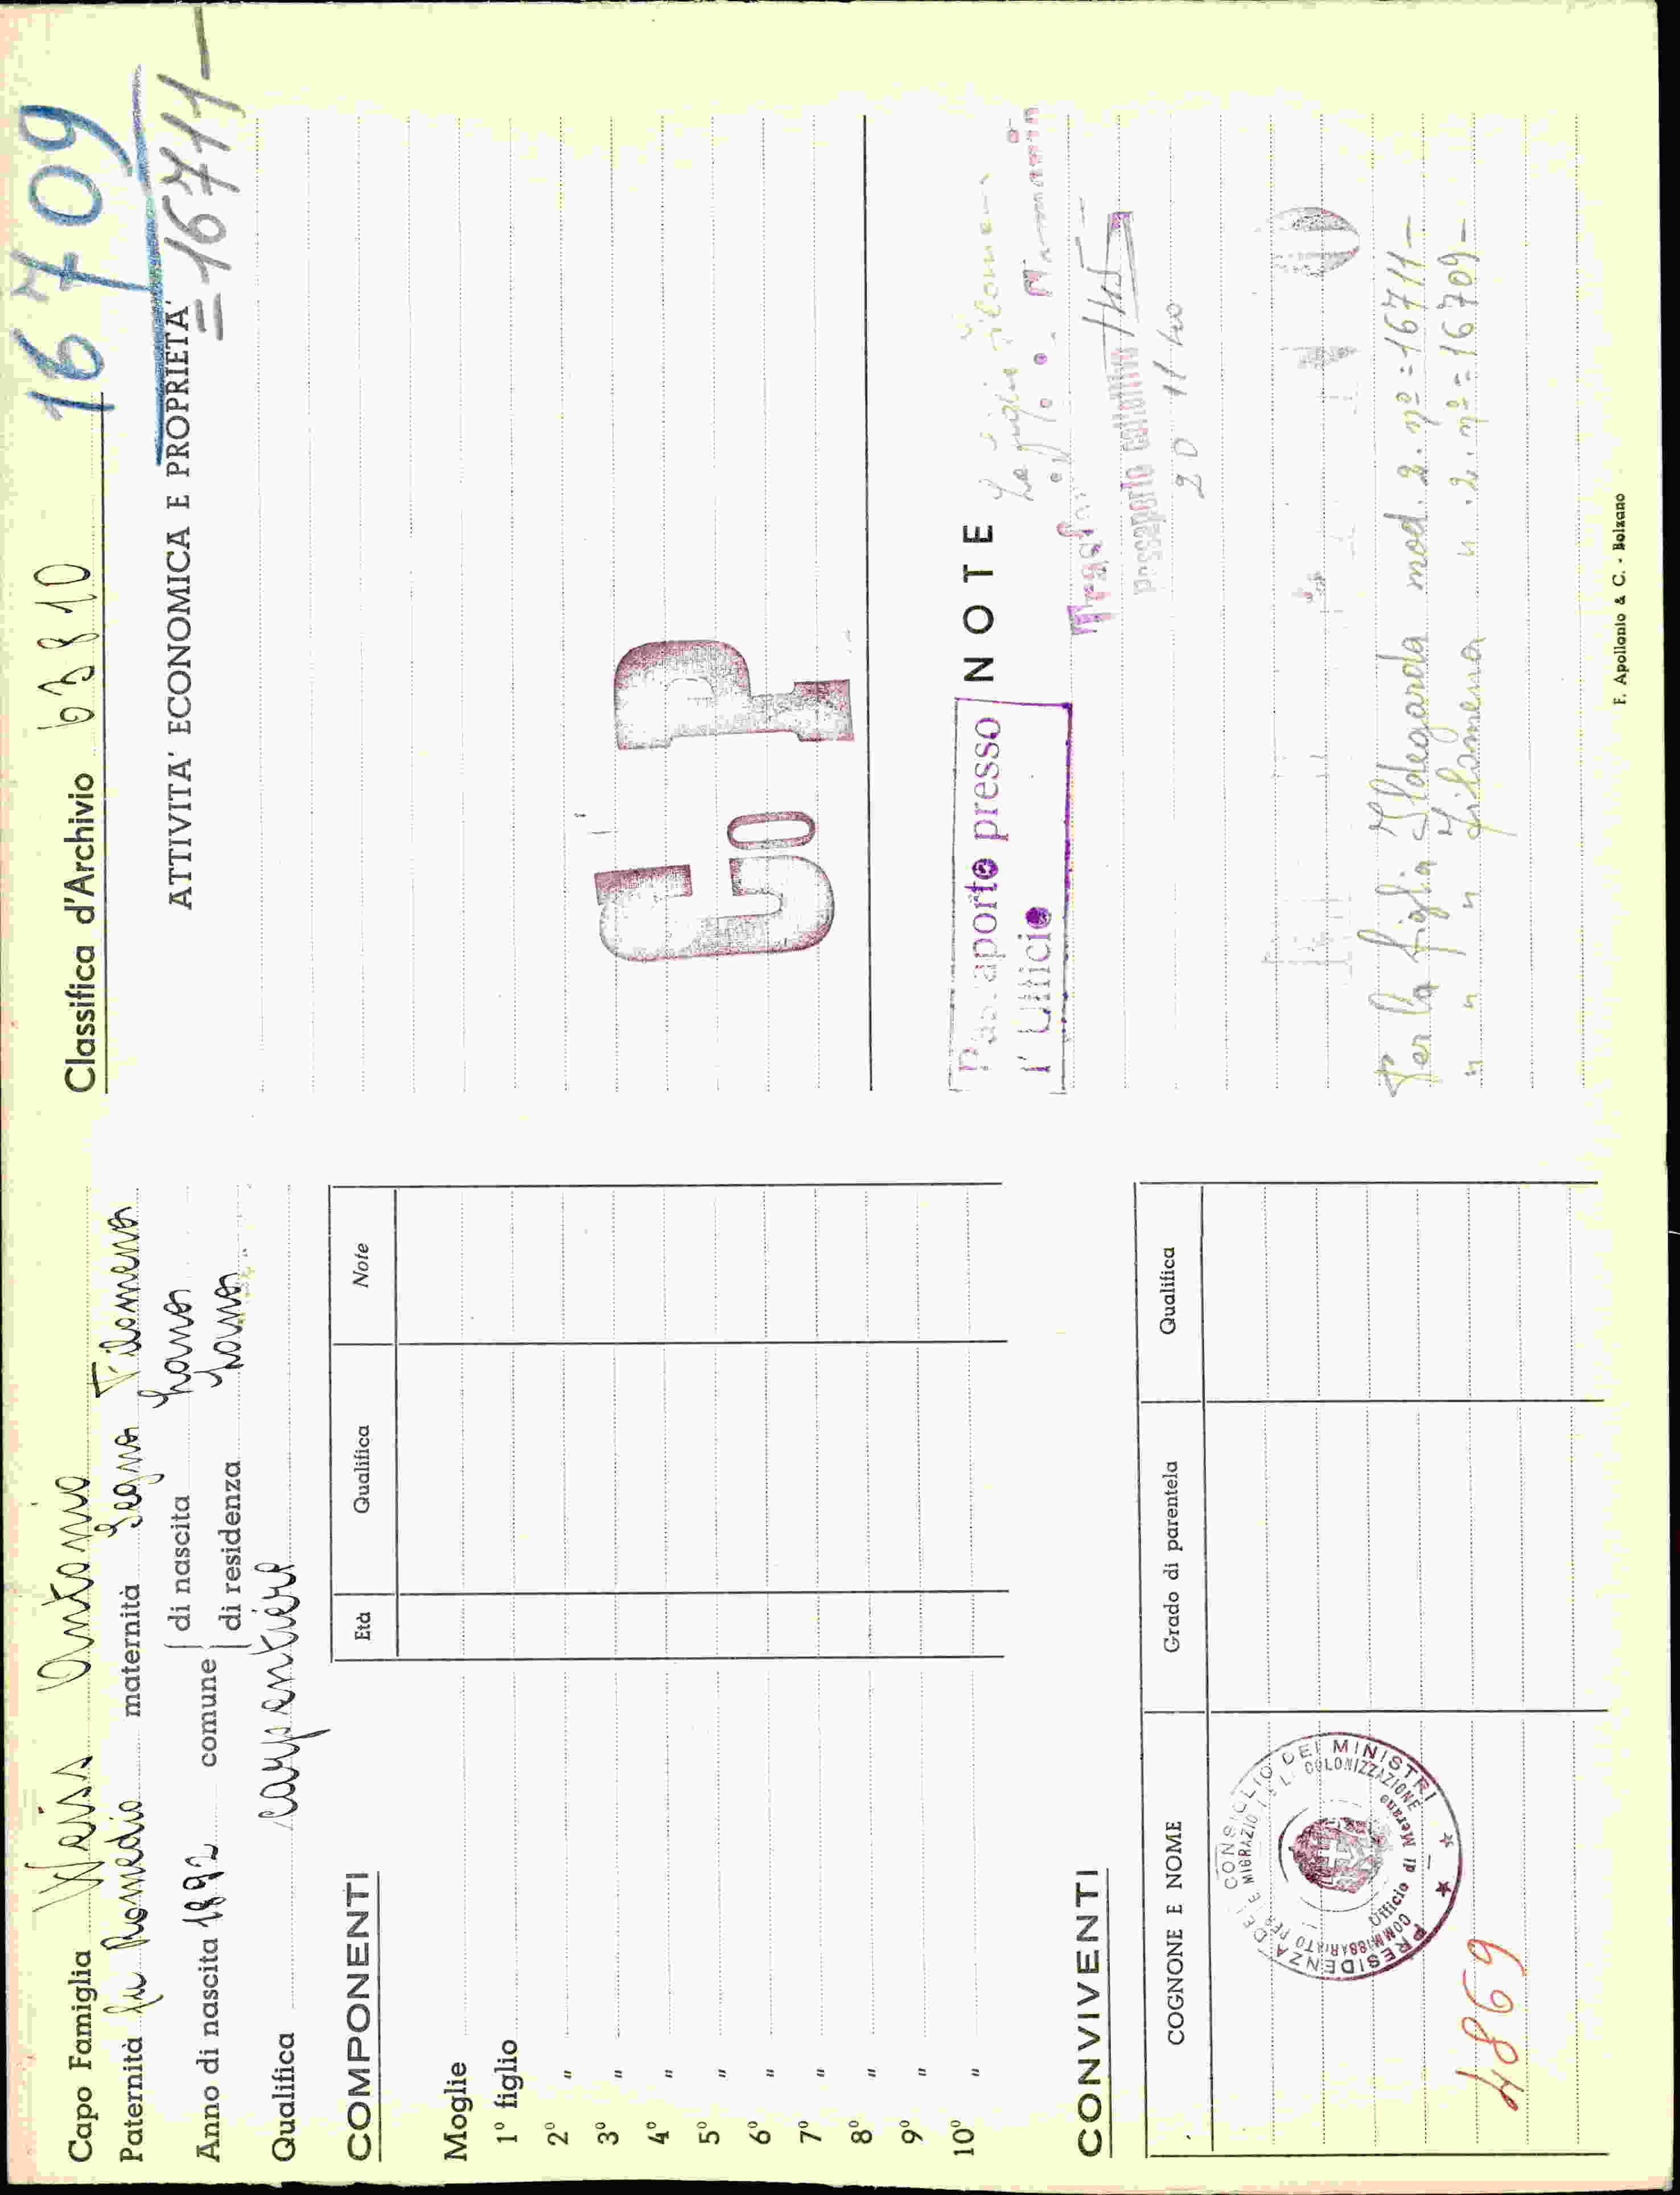 Capo Famiglia Weiss Antonio
Paternità fu Romedio maternità Segna Filomena
Anno di nascita 1892 comune di nascita Lana
di residenza Lana
Qualifica carpentiere
COMPONENTI
Età Qualifica Note
Moglie
1º figlio
2º "
3º "
4º "
5º "
6º "
7º "
8º "
9º "
10º "
CONVIVENTI
COGNONE E NOME Grado di parentela Qualifica
PRESIDENZA DEL CONSIGLIO DEI MINISTRI
COMMISSARIATO PER LE MIGRAZIONI E LA COLONIZZAZIONE
Ufficio di Merano
4869
Classifica d'Archivio 63810
16709
=16711-
ATTIVITA' ECONOMICA E PROPRIETA'
Co P
NOTE
Passaporto presso
l' Ufficio
La figlia
passaporto collettivo 145
20 11 40
Per la figlia Ildegarda mod. 2. nº = 16711 -
" " " Filomena " . 2. nº = 16709 -
F. Apollonio & C. - Bolzano